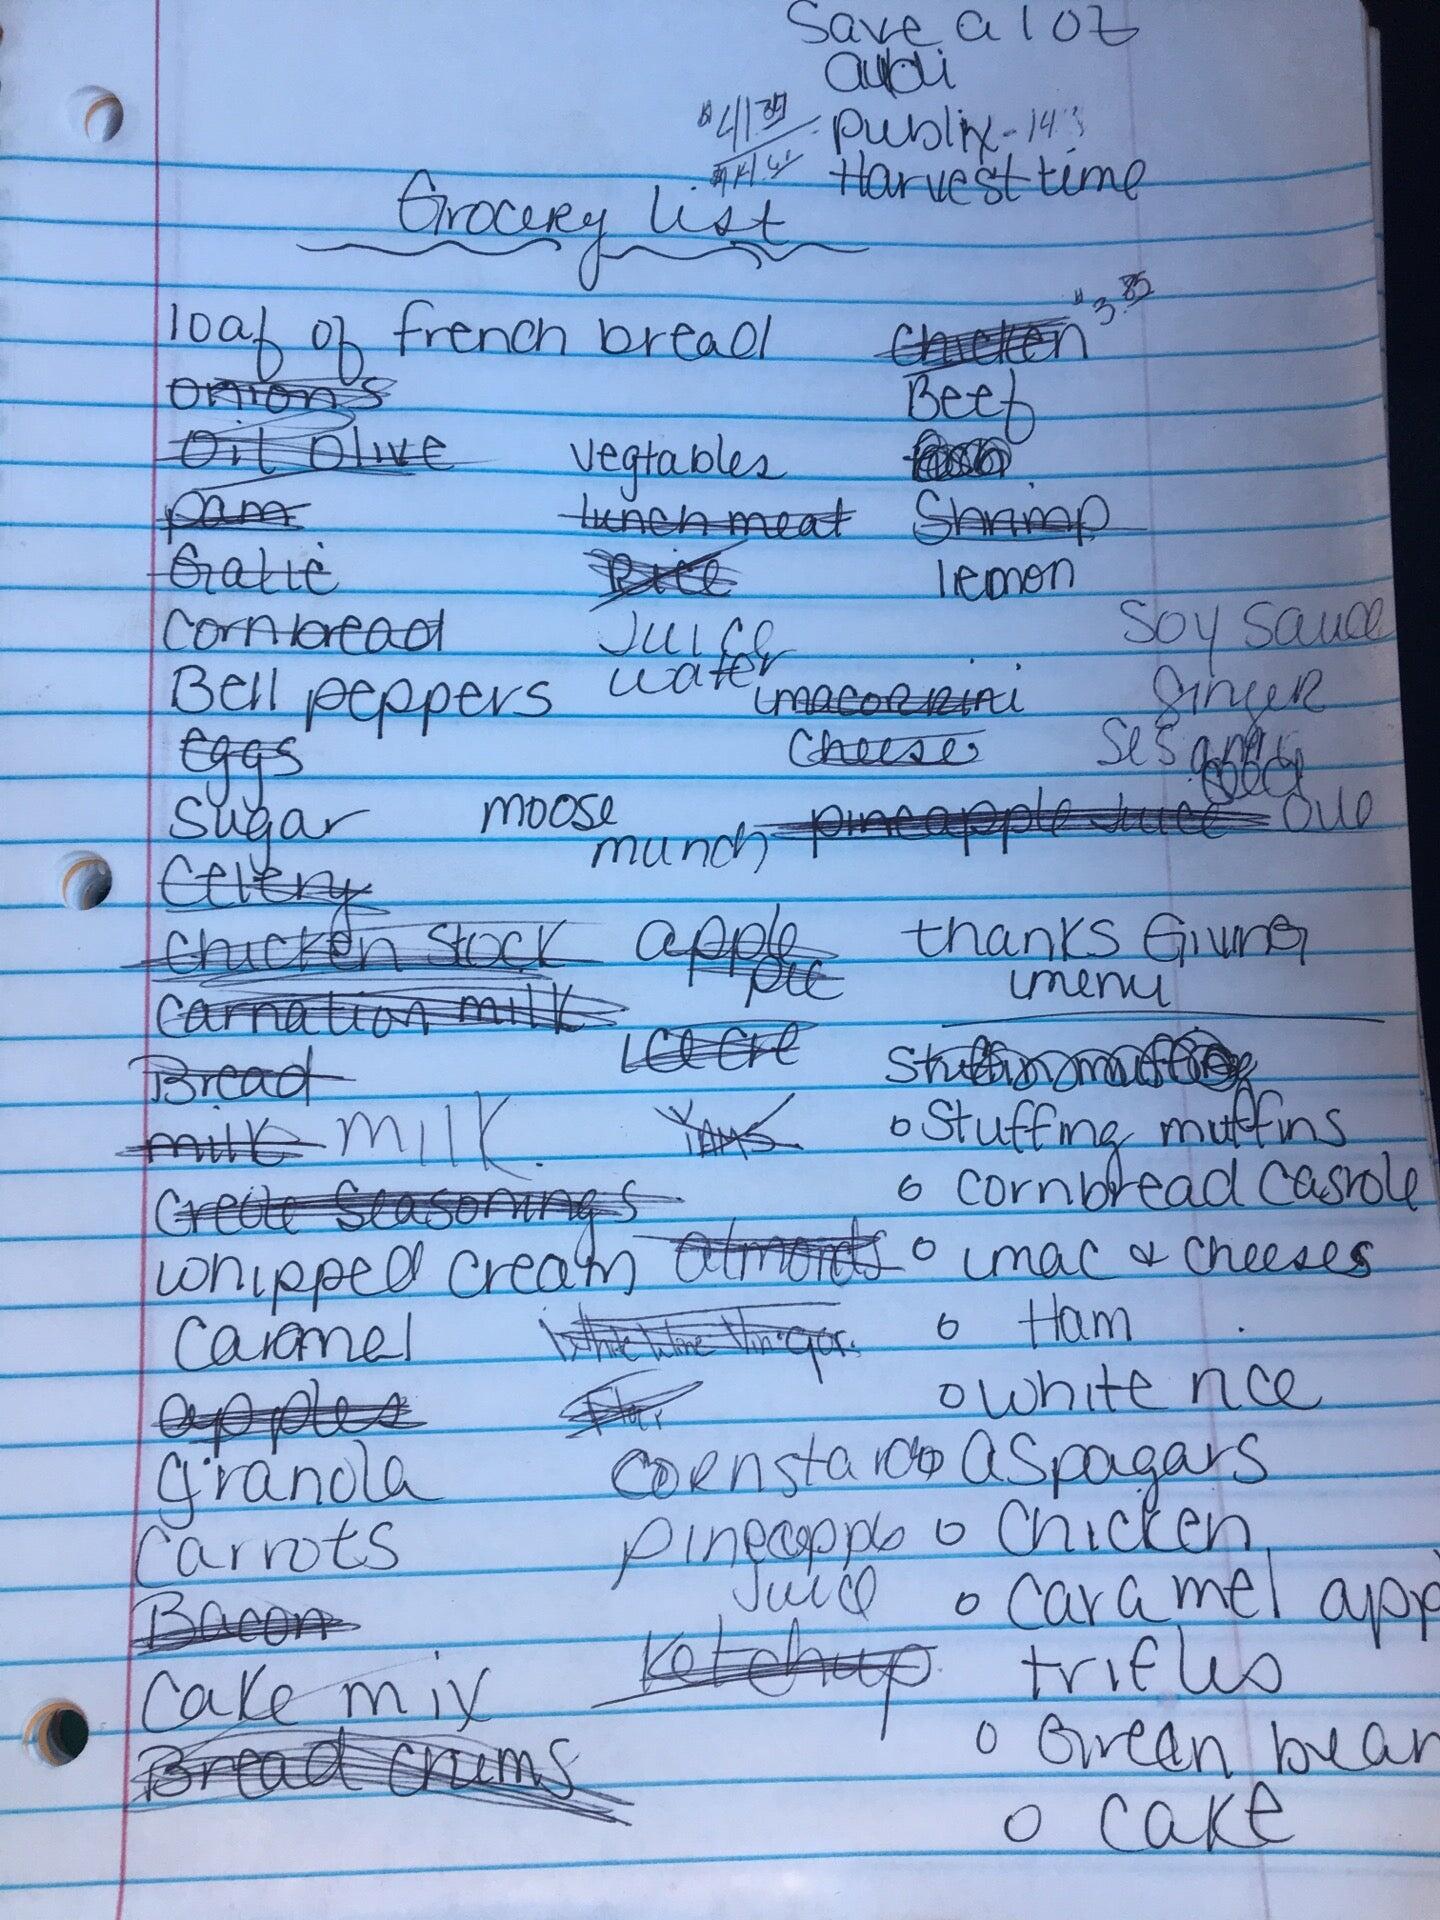 Save a lot
audi
$41.39
publix - 14
Harvest time
Grocery list
loaf of french bread
onions
Oil Olive
pam
Gralic
Cornbread
Bell peppers
eggs
Sugar
Celery
Chicken Stock
Carnation milk
Bread
milk milk
Creole Seasonings
whipped cream
Caramel
apples
granola
Carrots
Bacon
Cake mix
Bread crums
vegtables
lunch meat
Rice
Juice
water
moose
munch
apple
pie
Ice Cre
Yams
almonds
White Wine Vinegar
Cornstarch
pineapple
Juice
Ketchup
Chicken $3.85
Beef
Shrimp
lemon
macorrini
Cheese
pineapple Juice
Soy Sauce
Ginger
thanks Giving
menu
o Stuffing muffins
o cornbread casrole
o mac & cheeses
o Ham
o white rice
o aspagars
o Chicken
o caramel app
trifles
o Green bean
o cake